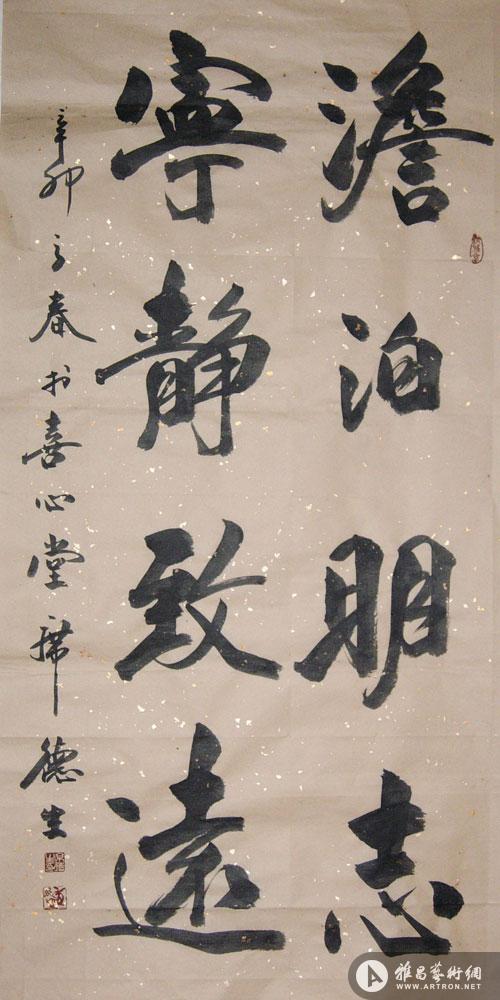 澹泊明志
寧靜致遠
辛卯之春於喜心堂席德生
雅昌藝術網
WWW.ARTRON.NET